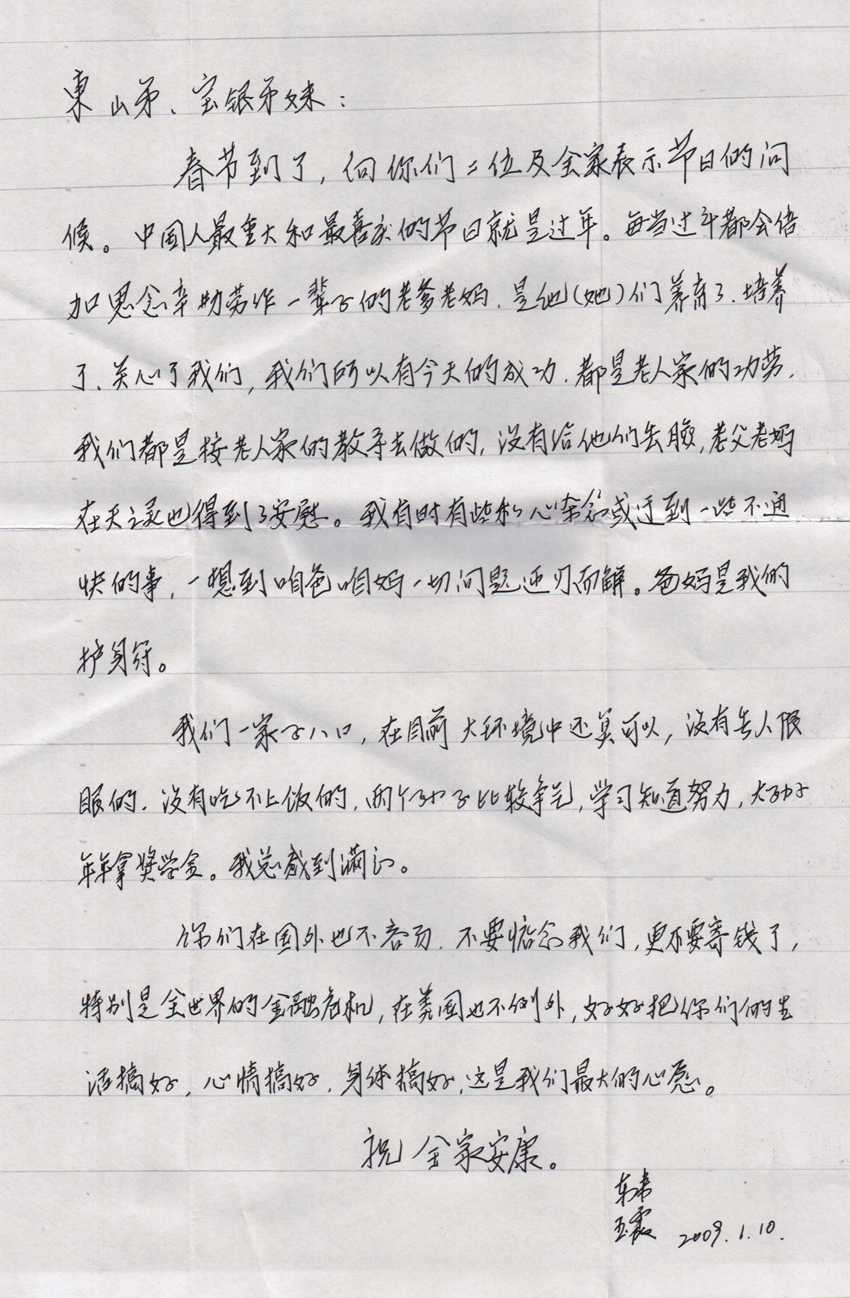 東山弟、宝银弟妹：
春节到了，向你们二位及全家表示节日的问
候。中国人最重大和最喜庆的节日就是过年。每当过年都会倍
加思念辛勤劳作一辈子的老爹老妈，是他(她)们养育了、培养
了、关心了我们，我们所以有今天的成功，都是老人家的功劳，
我们都是按老人家的教导去做的，没有给他们丢脸，老父老妈
在天之灵也得到了安慰。我有时有些私心杂念或遇到一些不通
快的事，一想到咱爸咱妈一切问题迎刃而解。爸妈是我的
护身符。
我们一家子八口，在目前大环境中还算可以，没有丢人限
眼的，没有吃不上饭的，两个孙子比较争气，学习知道努力，大孙子
年年拿奖学金。我总感到满足。
你们在国外也不容易，不要惦念我们，更不要寄钱了，
特别是全世界的金融危机，在美国也不例外，好好把你们的生
活搞好，心情搞好，身体搞好，这是我们最大的心愿。
祝 全家安康。
玉霞 2009.1.10.